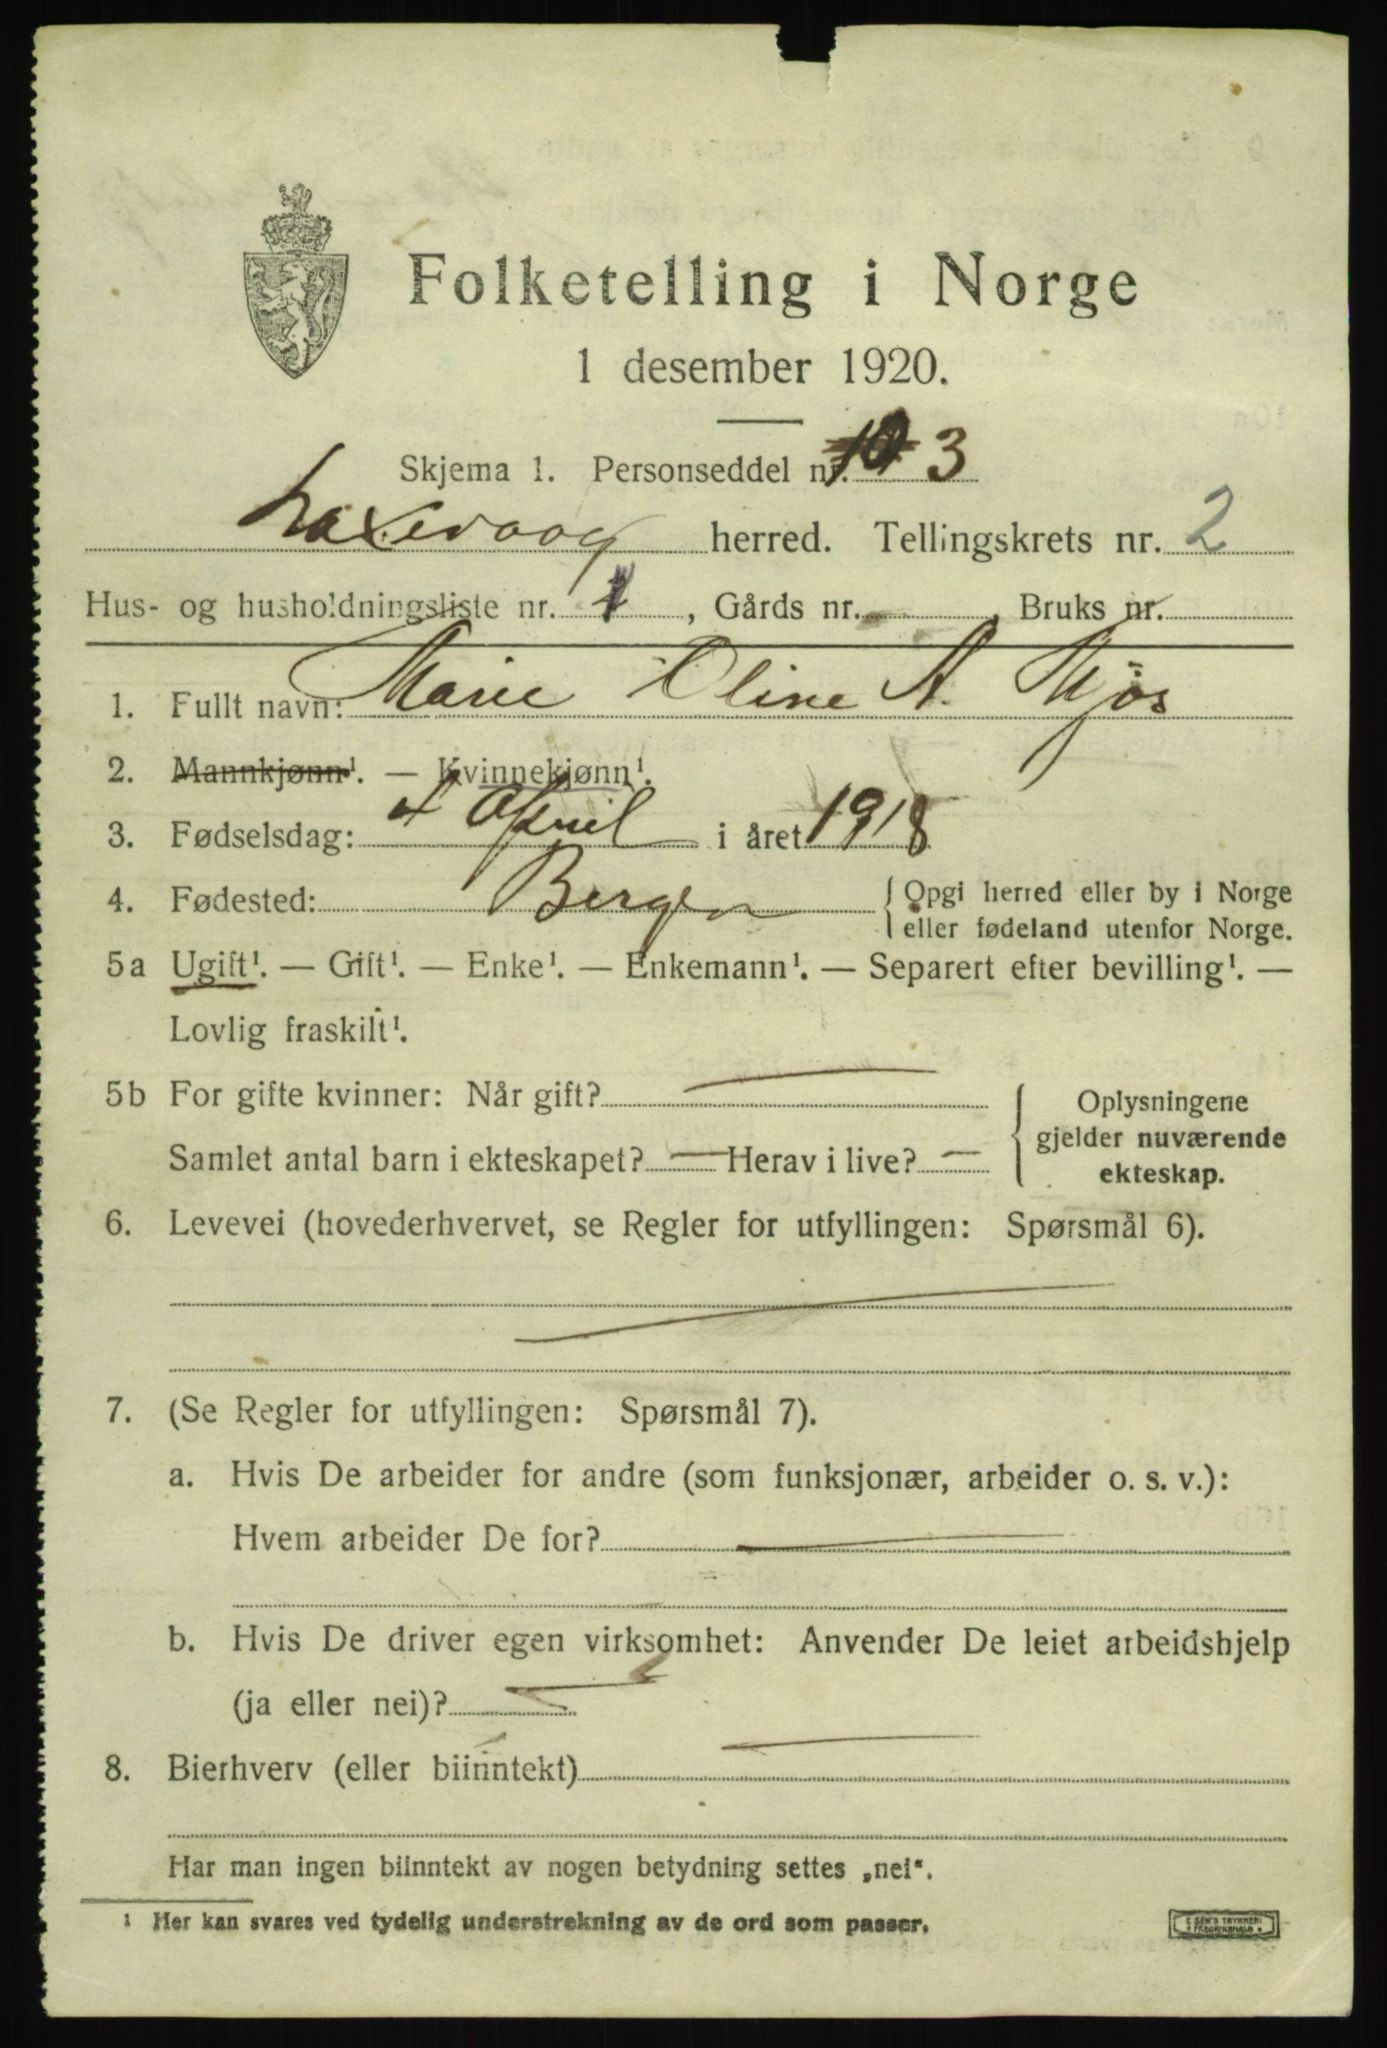 Folketelling i Norge
1 desember 1920.
Skjema 1. Personseddel nr. 3
Laxevaag herred. Tellingskrets nr. 2
Hus- og husholdningsliste nr. 1, Gårds nr. , Bruks nr.
1. Fullt navn: Marie Oline A. Mjøs
2. Mannkjønn¹. — Kvinnekjønn¹.
3. Fødselsdag: 4 April i året 1918
4. Fødested: Bergen { Opgi herred eller by i Norge
eller fødeland utenfor Norge.
5a Ugift¹. — Gift¹. — Enke¹. — Enkemann¹. — Separert efter bevilling¹. —
Lovlig fraskilt¹.
5b For gifte kvinner: Når gift? —
Samlet antal barn i ekteskapet? — Herav i live? —
{ Oplysningene
gjelder nuværende
ekteskap.
6. Levevei (hovederhvervet, se Regler for utfyllingen: Spørsmål 6).
—
7. (Se Regler for utfyllingen: Spørsmål 7).
a. Hvis De arbeider for andre (som funksjonær, arbeider o. s. v.):
Hvem arbeider De for? —
b. Hvis De driver egen virksomhet: Anvender De leiet arbeidshjelp
(ja eller nei)? —
8. Bierhverv (eller biinntekt) —
Har man ingen biinntekt av nogen betydning settes „nei“.
¹ Her kan svares ved tydelig understrekning av de ord som passer.